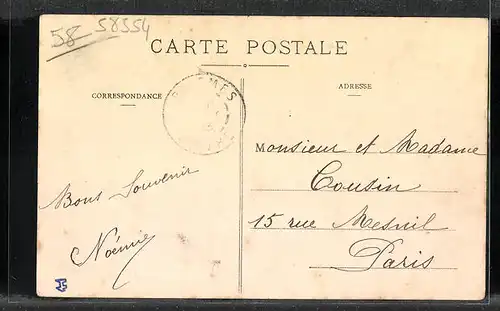 58 58554
CARTE POSTALE
CORRESPONDANCE
ADRESSE
Monsieur et Madame
Cousin
15 rue Mesnil
Paris
Bons Souvenir
Noémie